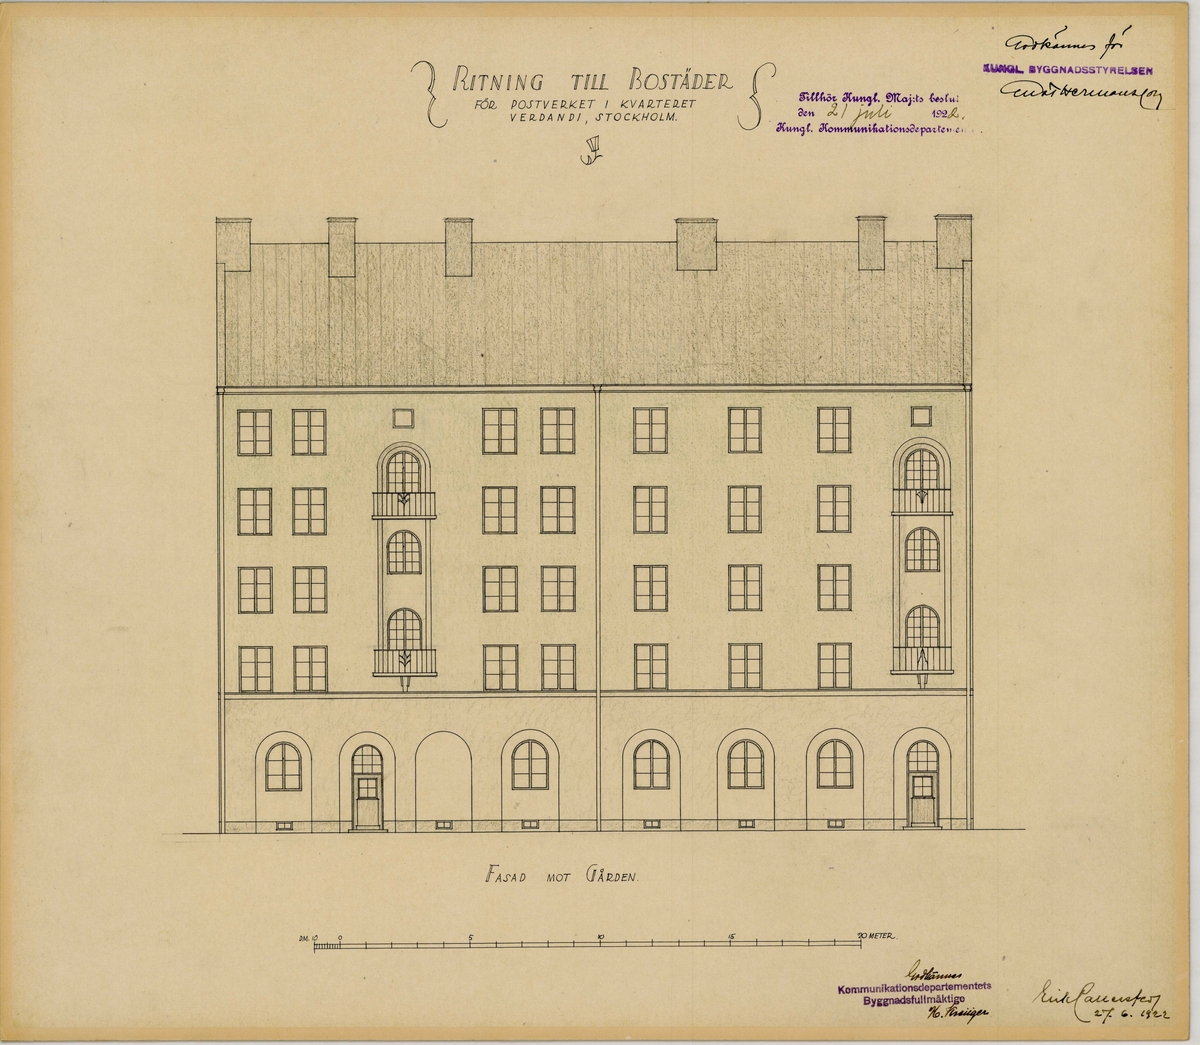 RITNING TILL BOSTÄDER
FÖR POSTVERKET I KVARTERET
VERDANDI, STOCKHOLM.
Tillhör Kungl. Maj:ts beslu
den 21 juli 1922.
Kungl. Kommunikationsdepartemen
Godkännes för
KUNGL. BYGGNADSSTYRELSEN
FASAD MOT GÅRDEN.
DM. 10 0 5 10 15 20 METER.
Godkännes
Kommunikationsdepartementets
Byggnadsfullmäktige
H. Krüger
Erik Lallerstedt
27. 6. 1922